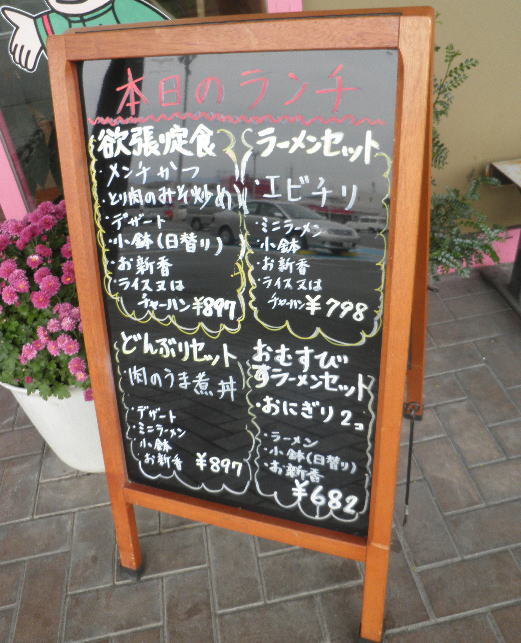 本日のランチ
欲張定食
メンチかつ
とり肉のみそ炒め
・デザート
・小鉢(日替り)
・お新香
・ライス又は
チャーハン ¥897
ラーメンセット
・エビチリ
・ミニラーメン
・小鉢
・お新香
・ライス又は
チャーハン ¥798
どんぶりセット
・肉のうま煮丼
・デザート
・ミニラーメン
・小鉢
お新香 ¥897
おむすび
ラーメンセット
・おにぎり2コ
・ラーメン
・小鉢(日替り)
・お新香
¥682